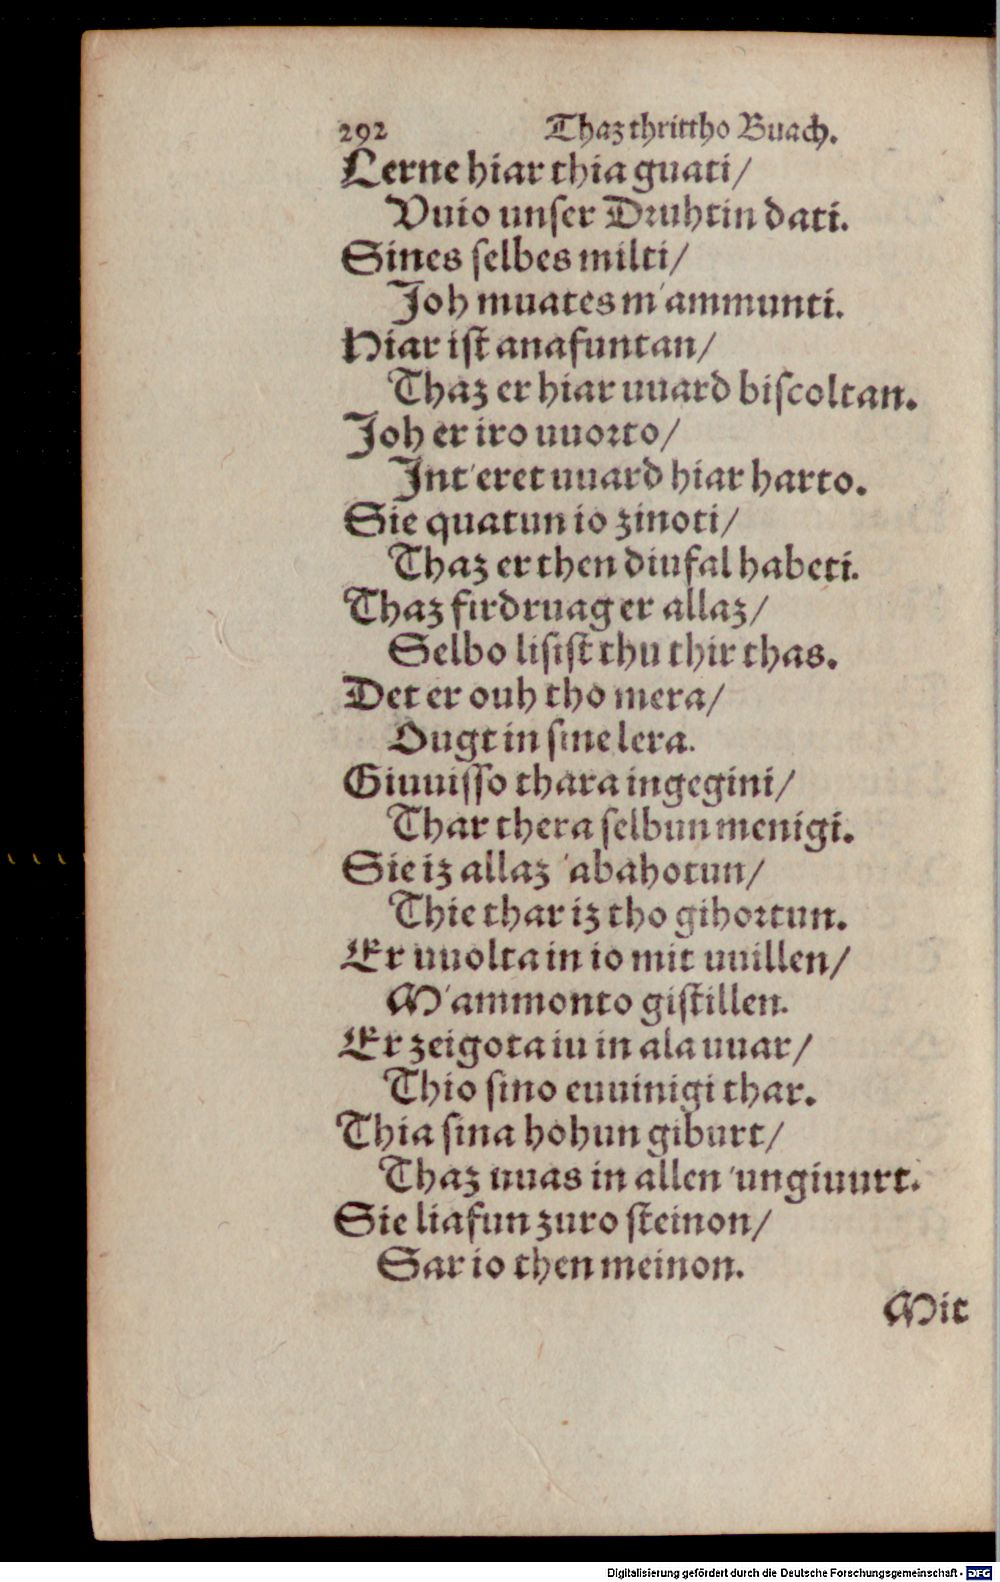 292 Thaz thrittho Buach.
Lerne hiar thia guati/
Vuio unser Druhtin dati.
Sines selbes milti/
Joh muates m'ammunti.
Hiar ist anafuntan/
Thaz er hiar uuard biscoltan.
Joh er iro uuorto/
Int'eret uuard hiar harto.
Sie quatun io zinoti/
Thaz er then diufal habeti.
Thaz firdruag er allaz/
Selbo lisist thu thir thas.
Det er ouh tho mera/
Ougt in sine lera.
Giuuisso thara ingegini/
Thar thera selbun menigi.
Sie iz allaz 'abahotun/
Thie thar iz tho gihortun.
Er uuolta in io mit uuillen/
M'ammonto gistillen.
Er zeigota iu in ala uuar/
Thio sino euuinigi thar.
Thia sina hohun giburt/
Thaz uuas in allen 'ungiuurt.
Sie liafun zuro steinon/
Sar io then meinon.
Mit
Digitalisierung gefördert durch die Deutsche Forschungsgemeinschaft - DFG